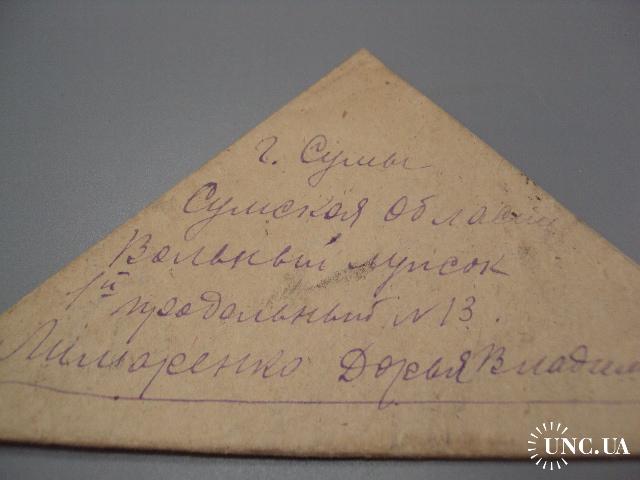 г. Сумы
Сумская Области
Вольный лужок
1й продольный N 13.
Лимаренко Дарья Владим
UNC.UA